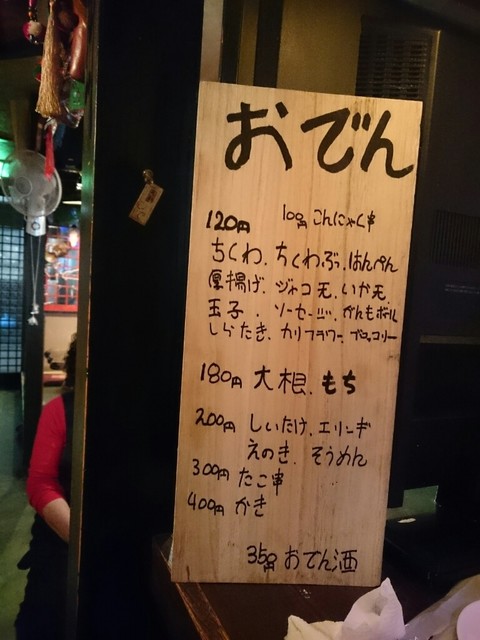 おでん
120円 10円 こんにゃく串
ちくわ、ちくわぶ、はんぺん
厚揚げ、ジャコ天、いか天、
玉子、ソーセージ、がんもボール
しらたき、カリフラワー、ブロッコリー
180円 大根、もち
200円 しいたけ、エリンギ
えのき、そうめん
300円 たこ串
400円 かき
350 おでん酒